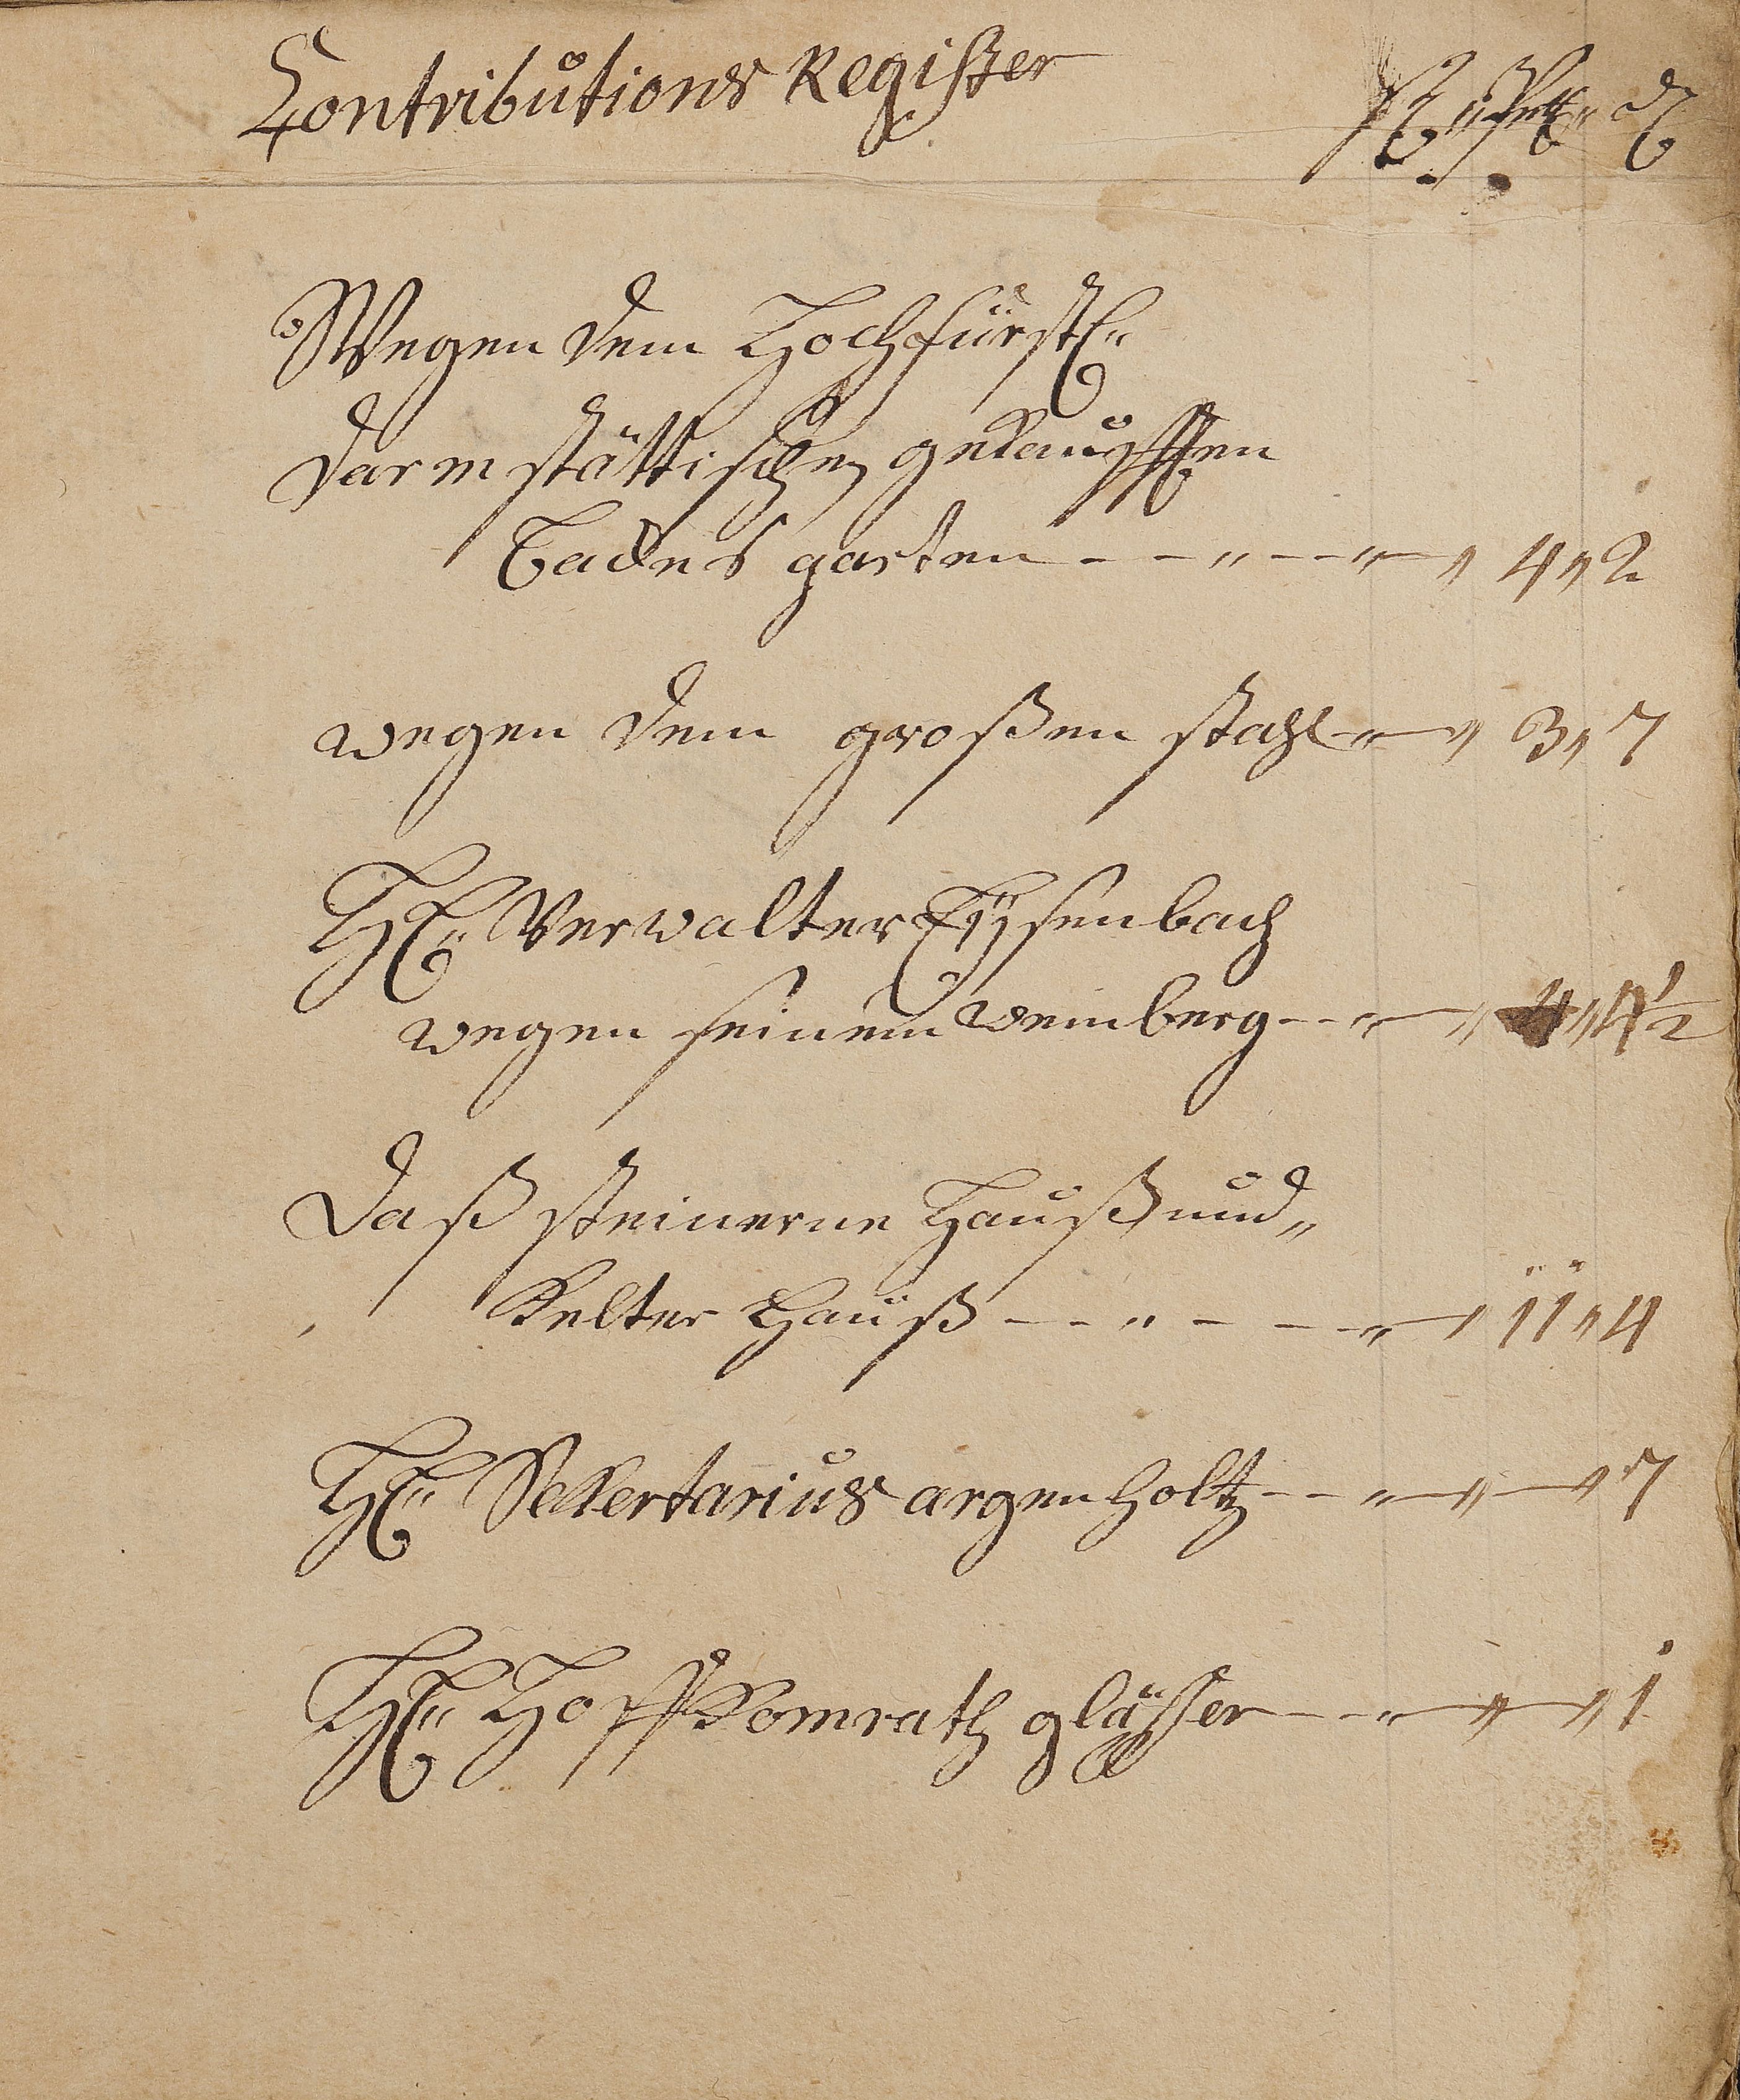 Contributions Register
Wegen dem Hochfürstl
Darmstättischen gekaufften
garten - - " - - " - " 4 " 2
wegen dem großen stahl " - " 3 " 7
H: Verwalter Eÿsenbach
wegen seinem weinberg - - " - " 4 " 4½
Daß steinerne Hauß und "
Kelter Hauß - - " - - - " - " 11 " 4
H: Sekertarius argenholtz - - " - " - " 7
H: Hoff Komrath glässer - - " - " - " 1